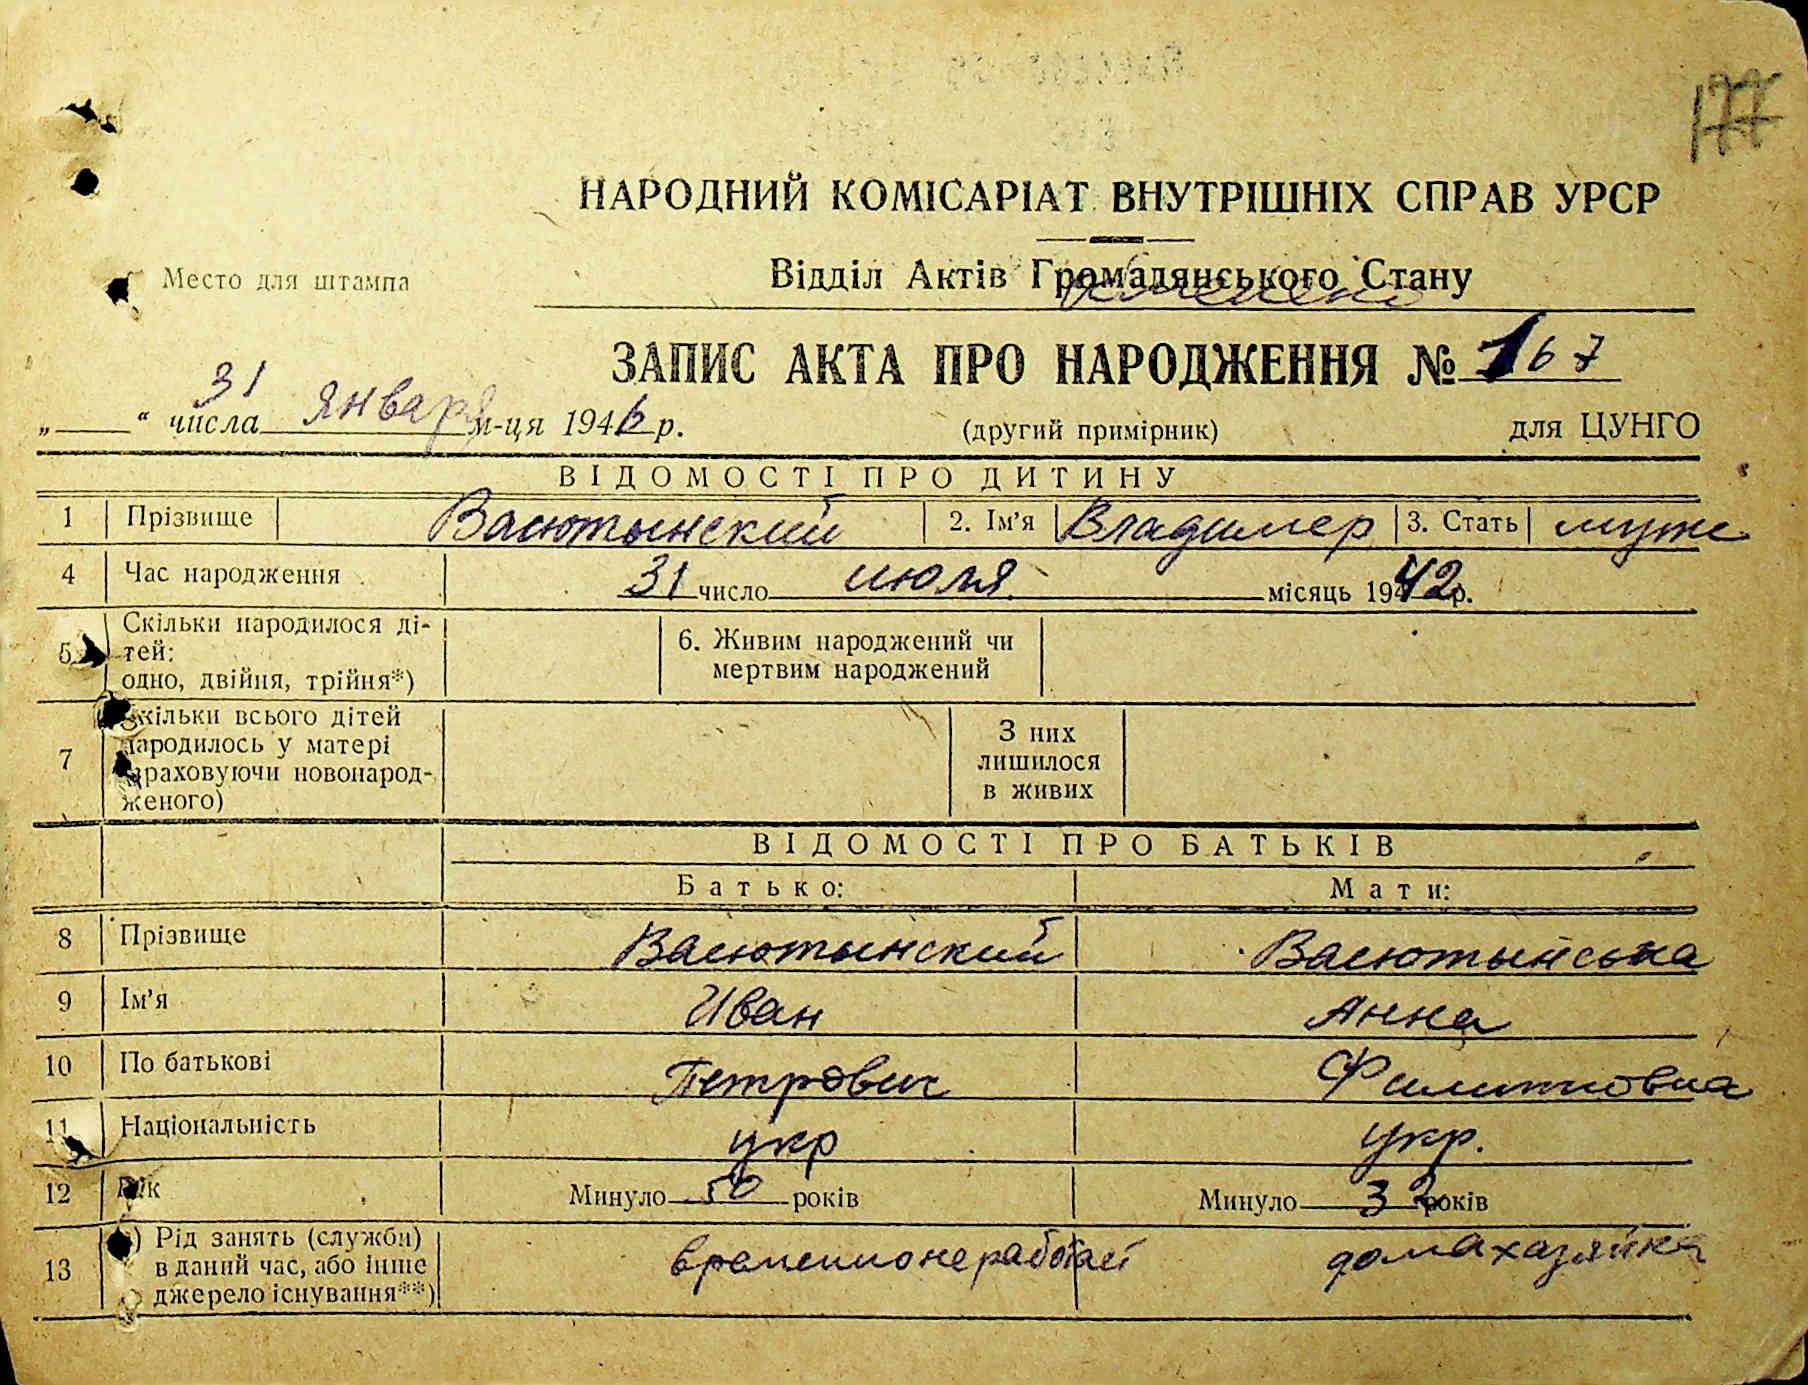 177
НАРОДНИЙ КОМІСАРІАТ ВНУТРІШНІХ СПРАВ УРСР
Место для штампа
Відділ Актів Громадянського Стану
ЗАПИС АКТА ПРО НАРОДЖЕННЯ № 167
„ “ 31 числа января м-ця 1946 р.
(другий примірник)
для ЦУНГО
ВІДОМОСТІ ПРО ДИТИНУ
1 Прізвище Васютынский 2. Ім'я Владимер 3. Стать муж
4 Час народження 31 число июля місяць 1942 р.
5 Скільки народилося ді-
тей:
одно, двійня, трійня*)
6. Живим народжений чи
мертвим народжений
7 Скільки всього дітей
народилось у матері
враховуючи новонарод-
женого)
З них
лишилося
в живих
ВІДОМОСТІ ПРО БАТЬКІВ
Батько: Мати:
8 Прізвище Васютынский Васютынська
9 Ім'я Иван Анна
10 По батькові Петрович Филиповна
11 Національність укр укр.
12 Вік Минуло 50 років Минуло 32 років
13 ) Рід занять (служби)
в даний час, або інше
джерело існування**)
временно не работает домахазяйка